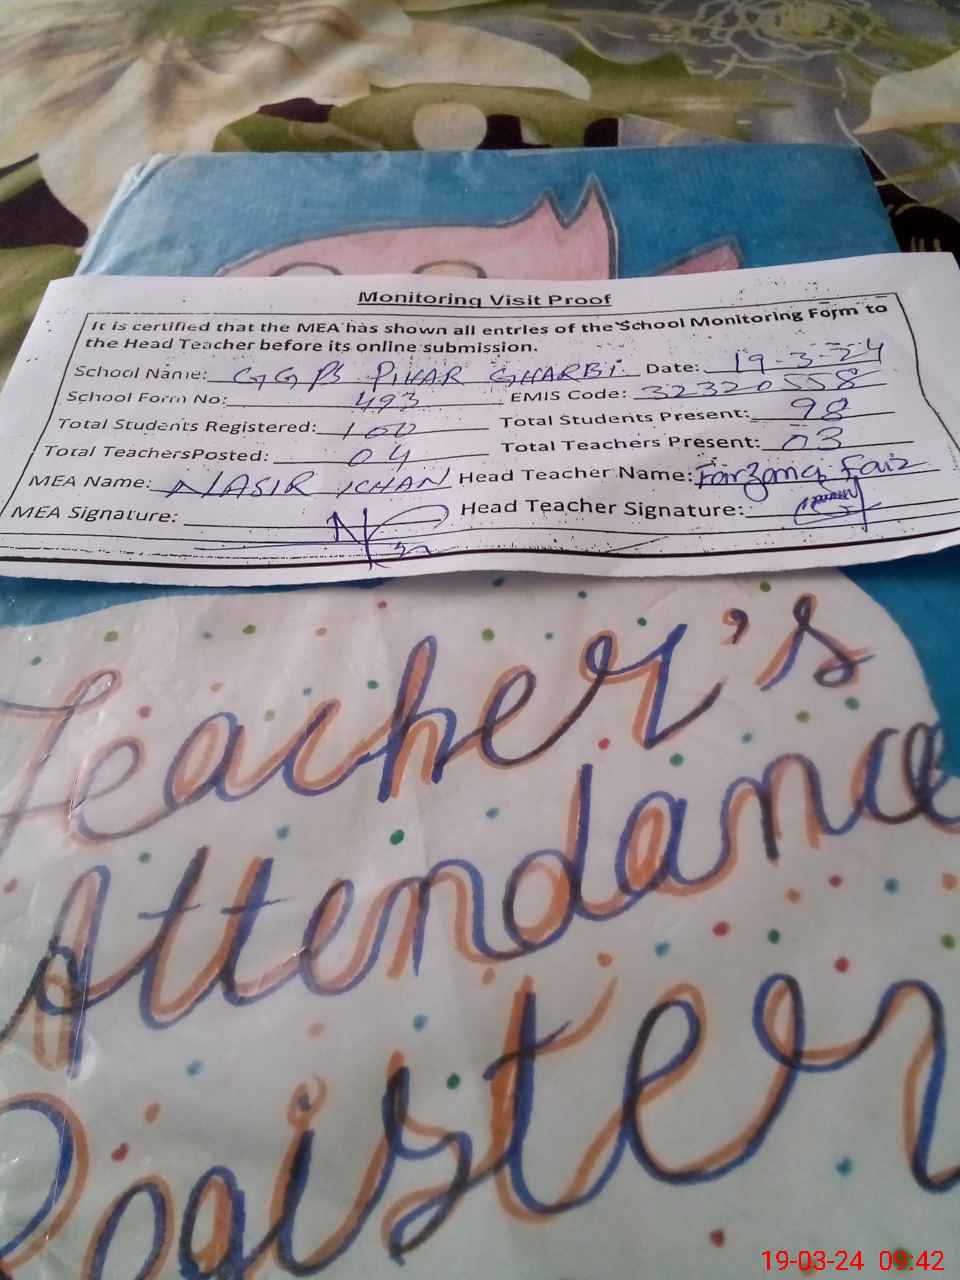 Monitoring Visit Proof
It is certified that the MEA has shown all entries of the School Monitoring Form to
the Head Teacher before its online submission.
School Name: GGPS PIHAR GHARBI Date: 19-3-24
School Form No: 493 EMIS Code: 32320558
Total Students Registered: 100 Total Students Present: 98
Total TeachersPosted: 04 Total Teachers Present: 03
MEA Name: NASIR KHAN Head Teacher Name: Farzana Faiz
MEA Signature: Head Teacher Signature:
Teacher's
Attendance
Register
19-03-24 09:42